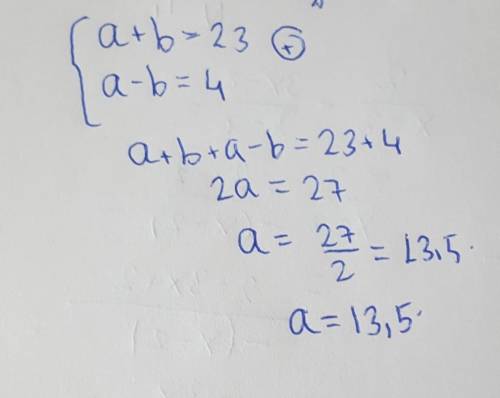 a+b=23 ⊕
a-b=4
a+b+a-b=23+4
2a=27
a=27/2=13,5.
a=13,5.